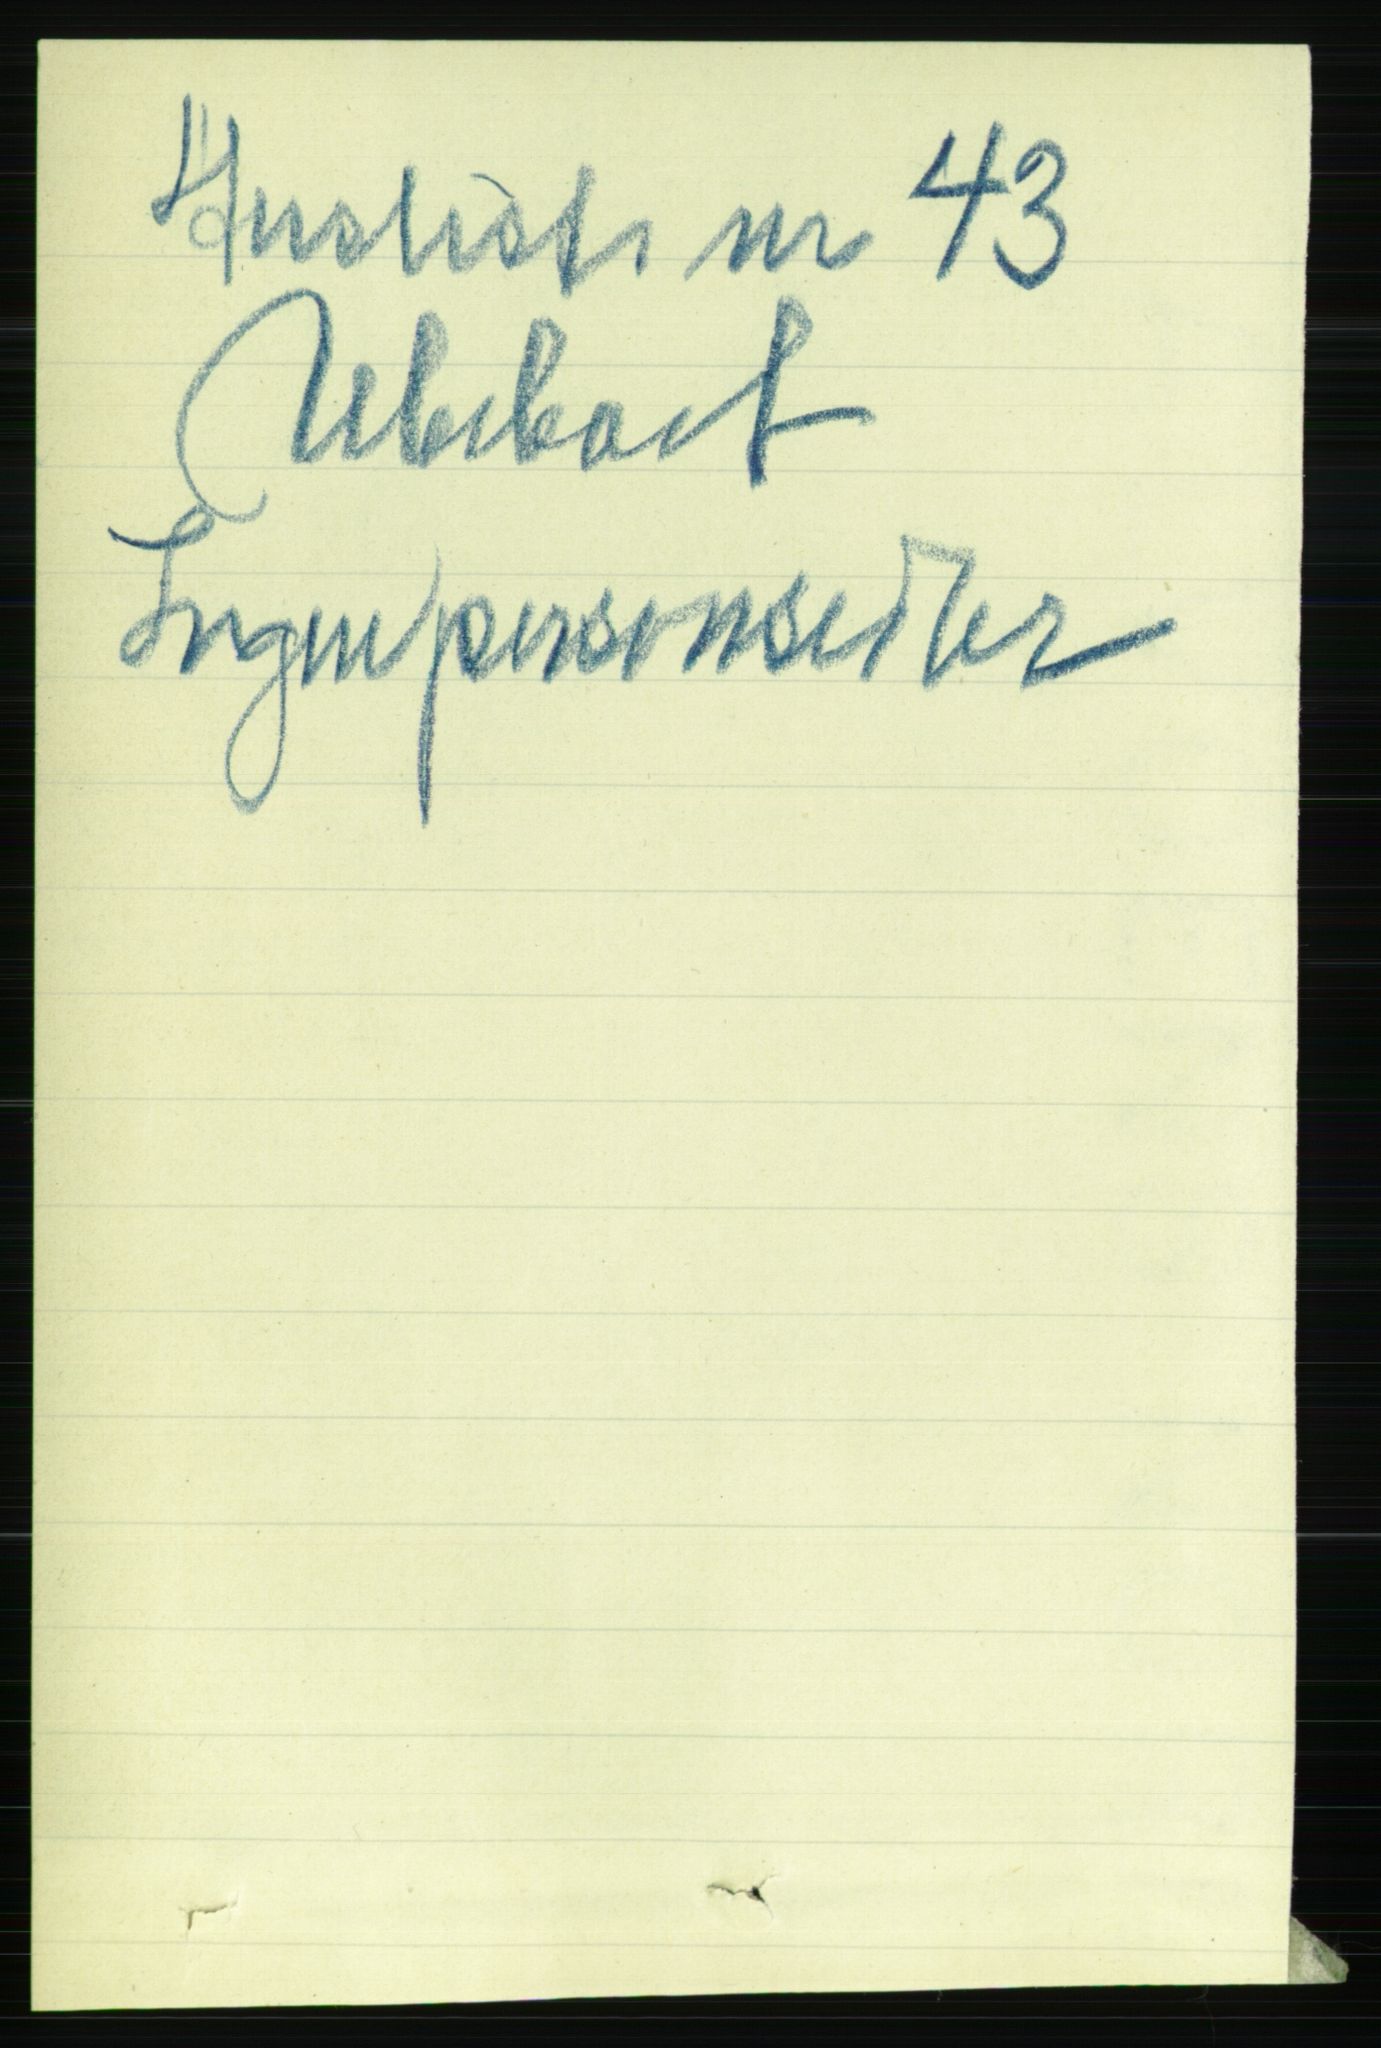 Husliste nr 43
Ubeboet
Ingen personsedler